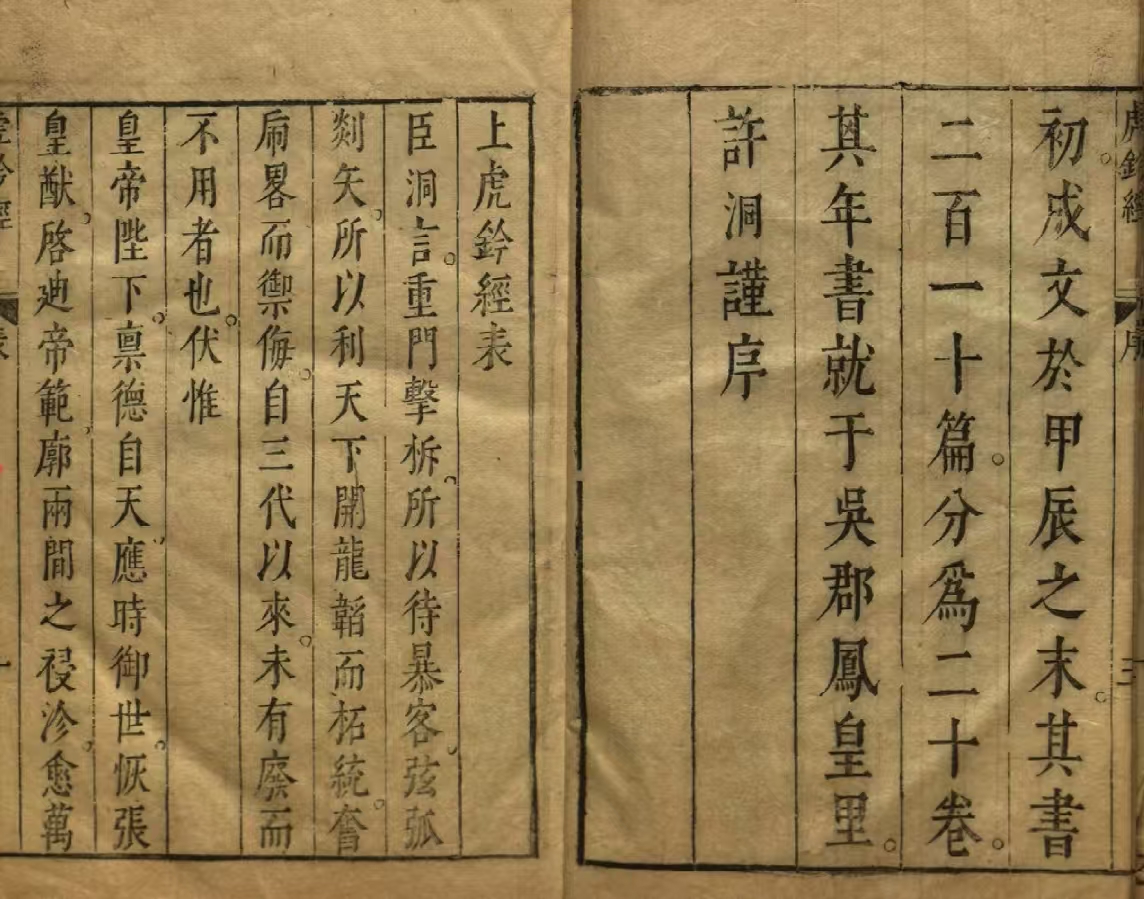 初成文於甲辰之末其書
二百一十篇分爲二十卷
其年書就于吳郡鳳皇里
許洞謹序
上虎鈐經表
臣洞言重門擊柝所以待暴客弦弧
剡矢所以利天下開龍韜而柘統奮
扄畧而禦侮自三代以來未有廢而
不用者也伏惟
皇帝陛下禀德自天應時御世恢張
皇猷啓迪帝範廓兩間之祲沴愈萬